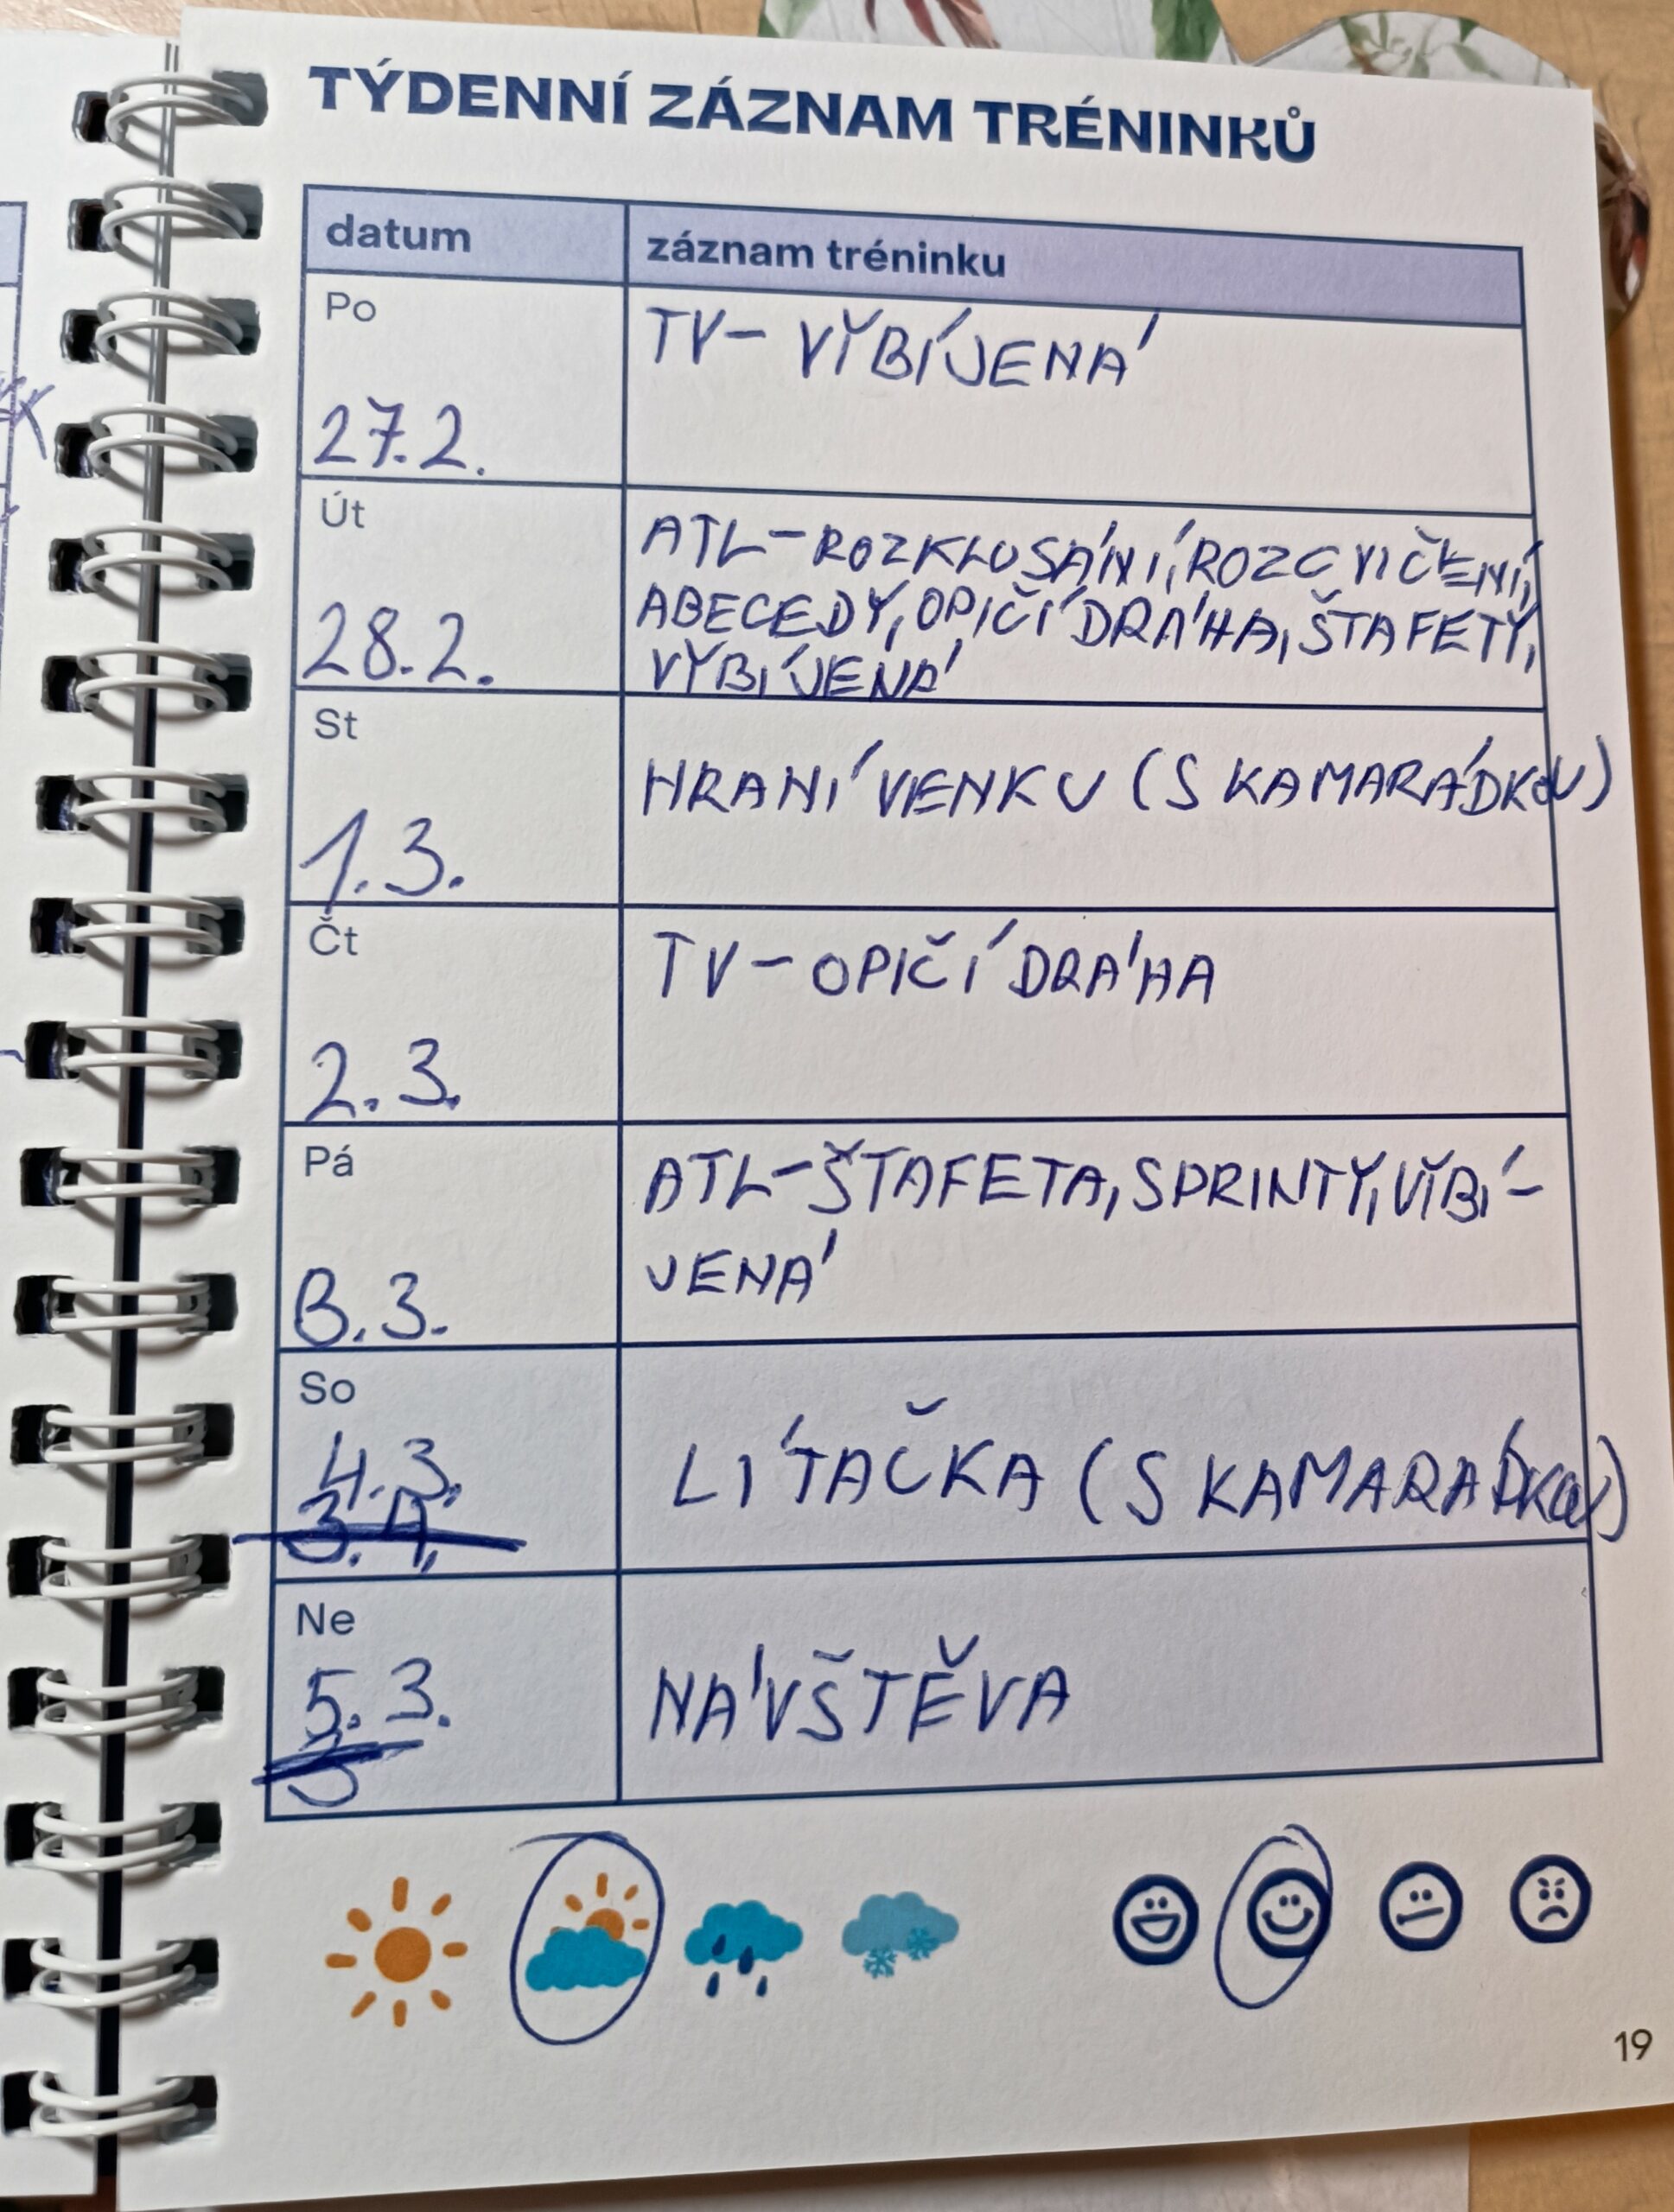 TÝDENNÍ ZÁZNAM TRÉNINKŮ
datum záznam tréninku
Po TV – VYBÍJENÁ
27.2.
Út ATL – ROZKLUSÁNÍ, ROZCVIČENÍ,
28.2. ABECEDY, OPIČÍ DRÁHA, ŠTAFETY,
VYBÍJENÁ
St HRANÍ VENKU (S KAMARÁDKOU)
1.3.
Čt TV – OPIČÍ DRÁHA
2.3.
Pá ATL – ŠTAFETA, SPRINTY, VYBÍ-
JENÁ
3.3.
So
4.3. LÍTAČKA (S KAMARÁDKOU)
Ne
5.3. NÁVŠTĚVA
19